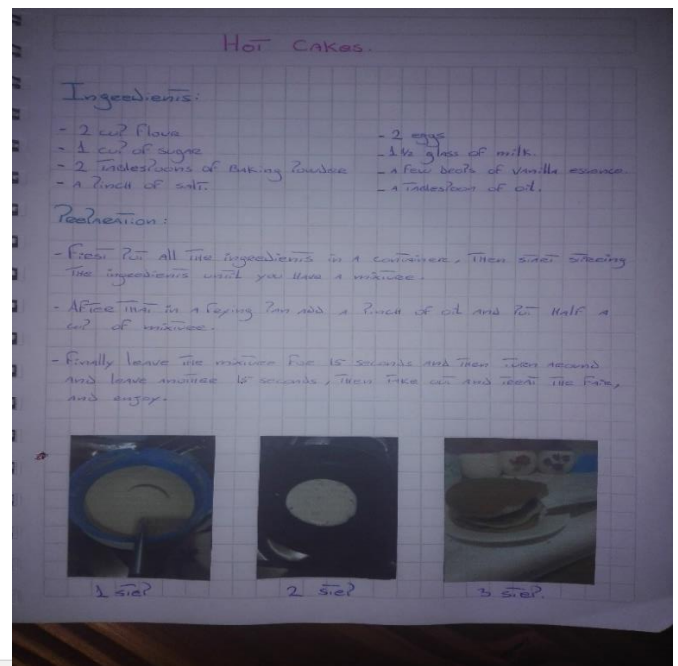 Hot Cakes.
Ingredients:
- 2 cup flour
- 1 cup of sugar
- 2 tablespoons of baking powder
- a pinch of salt.
- 2 eggs
- 1 ½ glass of milk.
- a few drops of vanilla essence
- a tablespoon of oil.
Preparation:
- First put all the ingredients in a container, then start stirring
the ingredients until you have a mixture.
- After that in a frying pan add a pinch of oil and put half a
cup of mixture.
- Finally leave the mixture for 15 seconds and then turn around
and leave another 15 seconds, then take out and the
and enjoy.
1 step
2 step
3 step.